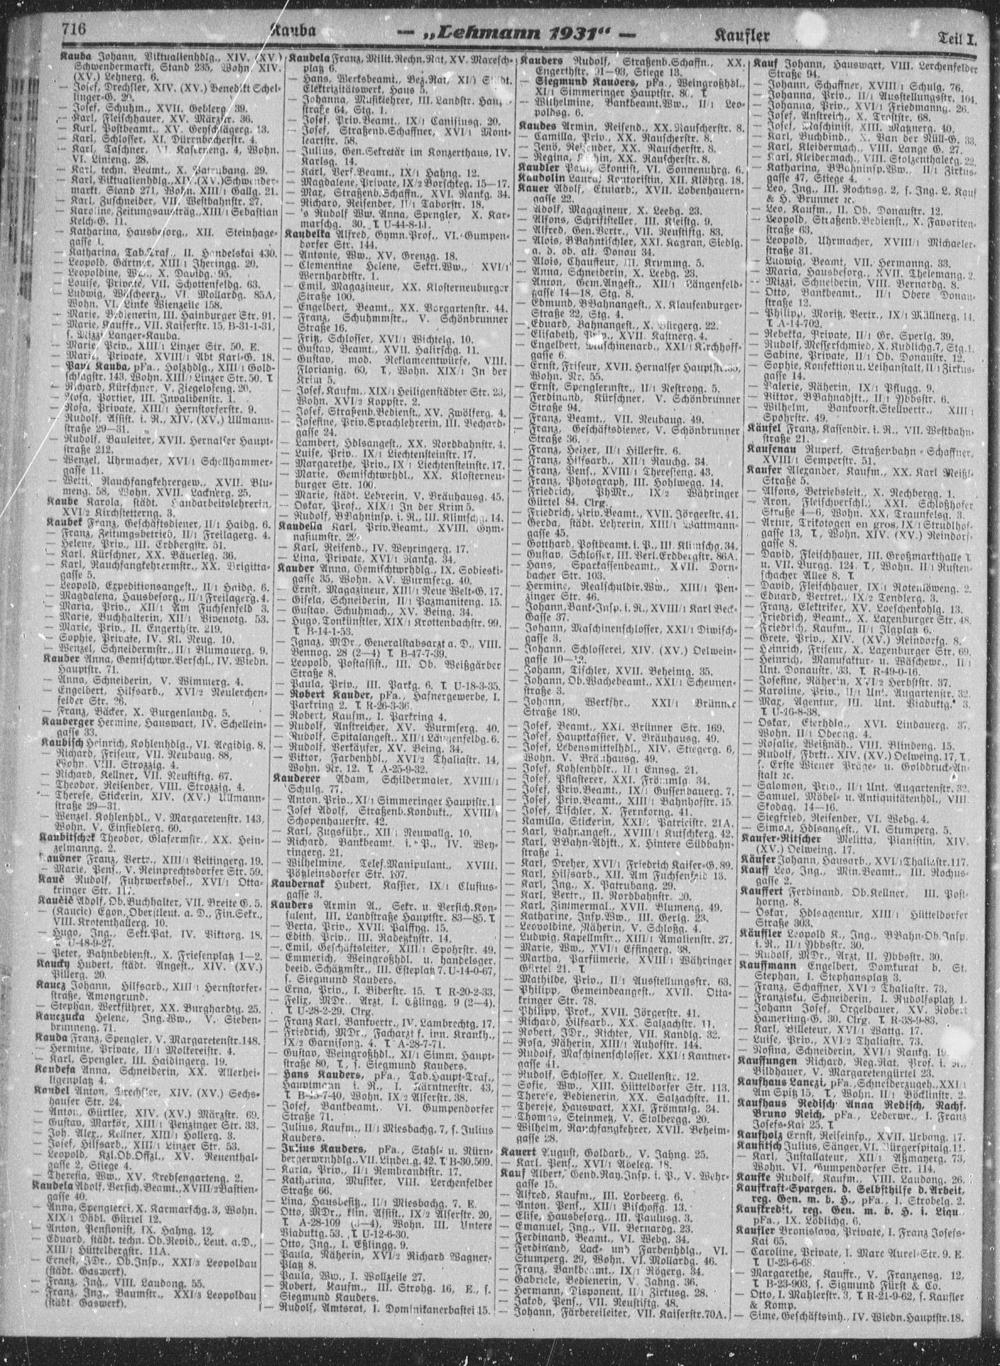 716
Kauba
— „Lehmann 1931“ —
Kaufler
Teil I.
Kauba Johann, Viktualienhdlg., XIV. (XV.)
Schwendermarkt, Stand 235, Wohn. XIV.
(XV.) Lehnerg. 6.
— Josef, Drechsler, XIV. (XV.) Benedikt Schel-
linger-G. 20.
— Josef, Schuhm., XVII. Geblerg. 39.
— Karl, Fleischhauer, XV. Märzstr. 36.
— Karl, Postbeamt., XV. Geyschlägerg. 13.
— Karl, Schlosser, XI. Dürrnbacherstr. 4.
— Karl, Taschner, VI. Kaserneng. 4, Wohn.
VI. Linieng. 28.
— Karl, techn. Beamt., X. Patrubang. 29.
— Karl, Zuschneider, VII. Westbahnstr. 27.
— Karoline, Zeitungsausträg., XIII/1 Sebastian
Kelch-G. 11.
— Katharina, Hausbesorg., XII. Steinhage-
gasse 1.
— Katharina, Tab.Traf., II. Handelskai 430.
— Leopold, Gärtner, XIII/1 Jheringg. 20.
— Leopoldine, Ww., X. Davidg. 95.
— Louise, Private, VII. Schottenfeldg. 63.
— Ludwig, Wäscherz., VI. Mollardg. 85A,
Wohn. VI. Linke Wienzeile 158.
— Marie, Bedienerin, III. Hainburger Str. 91.
— Marie, Kauffr., VII. Kaiserstr. 15, B-31-1-31,
s. Mizzi Langer-Kauba.
— Marie, Priv., XIII/1 Linzer Str. 50. E.
— Marie, Private, XVIII/1 Abt Karl-G. 18.
— Paul Kauba, pFa., Holzhdlg., XIII/1 Gold-
schlagstr. 143, Wohn. XIII/1 Linzer Str. 50. T
— Richard, Kürschner, V. Ziegelofeng. 20.
— Rosa, Portier, III. Invalidenstr. 1.
— Rosa, Private, XIII/1 Hernstorferstr. 9.
— Rudolf, Assist. i. R., XIV. (XV.) Ullmann-
straße 29—31.
— Rudolf, Bauleiter, XVII. Hernalser Haupt-
straße 212.
— Wenzel, Uhrmacher, XVI/1 Schellhammer-
gasse 11.
— Wetti, Rauchfangkehrergew., XVII. Blu-
meng. 58, Wohn. XVII. Lacknerg. 25.
Kaube Karola, städt. Handarbeitslehrerin,
XVI/2 Kirchstetterng. 3.
Kaubek Franz, Geschäftsdiener, II/1 Haidg. 6.
— Franz, Zeitungsbetrieb, II/1 Freilagerg. 4.
— Helene, Priv., III. Erdbergstr. 51.
— Karl, Kürschner, XX. Bäuerleg. 36.
— Karl, Rauchfangkehrermstr., XX. Brigitta-
gasse 5.
— Leopold, Expeditionsangest., II/1 Haidg. 6.
— Magdalena, Hausbesorg., II/1 Freilagerg. 4.
— Maria, Priv., XII/1 Am Fuchsenfeld 3.
— Marie, Buchhalterin, XII/1 Vivenotg. 53.
— Marie, Priv., II. Engerthstr. 219.
— Sophie, Private, IV. Kl. Neug. 10.
— Wenzel, Schneidermstr., II/1 Blumauerg. 9.
Kauber Anna, Gemischtwar.Verschl., IV. Wiedn.
Hauptstr. 71.
— Anna, Schneiderin, V. Wimmerg. 4.
— Engelbert, Hilfsarb., XVI/2 Neulerchen-
felder Str. 26.
— Franz, Bäcker, X. Burgenlandg. 5.
Kauberger Hermine, Hauswart, IV. Schellein-
gasse 33.
Kaubisch Heinrich, Kohlenhdlg., VI. Aegidig. 8.
— Richard, Friseur, VII. Neubaug. 88,
Wohn. VIII. Strozzig. 4.
— Richard, Kellner, VII. Neustiftg. 67.
— Theodor, Reisender, VIII. Strozzig. 4.
— Therese, Stickerin, XIV. (XV.) Ullmann-
straße 29—31.
— Wenzel, Kohlenhdl., V. Margaretenstr. 143,
Wohn. V. Einsiedlerg. 60.
Kaubitschek Theodor, Glasermstr., XX. Hein-
zelmanng. 2.
Kaubner Franz, Vertr., XIII/1 Beitingerg. 19.
— Marie, Pens., V. Reinprechtsdorfer Str. 59.
Kauc Rudolf, Fuhrwerksbes., XVI/1 Otta-
kringer Str. 117.
Kaučič Adolf, Ob.Buchhalter, VII. Breite G. 5.
— (Kaucic) Egon, Oberstleut. a. D., Fin.Sekr.,
VIII. Krotenthallerg. 10.
— Hugo, Ing., Sekt.Rat, IV. Viktorg. 18.
T U-48-9-27.
— Peter, Bahnbedienst., X. Friesenplatz 1—2.
Kaucky Hubert, städt. Angest., XIV. (XV.)
Pillerg. 20.
Kaucz Johann, Hilfsarb., XIII/1 Hernstorfer-
straße, Amongrund.
— Stephan, Werkführer, XX. Burghardtg. 25.
Kauczucka Helene, Ing.Ww., V. Sieben-
brunneng. 71.
Kauda Franz, Spengler, V. Margaretenstr. 148.
— Hermine, Private, II/1 Molkereistr. 4.
— Karl, Spengler, III. Haidingerg. 19.
Kaudesa Anna, Schneiderin, XX. Allerhei-
ligenplatz 4.
Kaudel Anton, Drechsler, XIV. (XV.) Sechs-
hauser Str. 24.
— Anton, Gürtler, XIV. (XV.) Märzstr. 69.
— Gustav, Markör, XIII/1 Penzinger Str. 33.
— Joh. Alex., Kellner, XIII/1 Hollerg. 3.
— Josef, Hilfsarb., XIII/1 Linzer Str. 53.
— Leopold, Kzl.Ob.Offzl., XV. Reuenthal-
gasse 2, Stiege 4.
— Theresia, Ww., XV. Krebsengarteng. 2.
Kaudela Adolf, Versich.Beamt., XVIII/2 Bastien-
gasse 40.
— Anna, Spenglerei, X. Karmarschg. 3, Wohn.
XIX/1 Döbl. Gürtel 12.
— Anton, Pensionist, IX. Hahng. 12.
— Eduard, städt. techn. Ob.Revid., Leut. a. D.,
XIII/1 Hüttelbergstr. 11A.
— Ernest, JDr., Ob.Insp., XXI/3 Leopoldau
(städt. Gaswerk).
— Franz, Ing., VIII. Laudong. 55.
— Franz, Ing., Baumstr., XXI/3 Leopoldau
(städt. Gaswerk).
Kaudela Franz, Milit.Rechn.Rat, XV. Maresch-
platz 6.
— Josef, Priv.Beamt., IX/1 Canisiusg. 20.
— Josef, Straßenb.Schaffner, XVI/1 Mont-
leartstr. 58.
— Julius, Gen.Sekretär im Konzerthaus, IV.
Karlsg. 14.
— Karl, Vers.Beamt., IX/1 Hahng. 12.
— Magdalene, Private, IX/2 Borschkeg. 15—17.
— Max, Straßenb.Schaffn., XVI. Rankg. 34.
— Richard, Reisender, II/1 Taborstr. 18.
— 's Rudolf Ww. Anna, Spengler, X. Kar-
marschg. 30. T U-44-8-11.
Kaudelka Alfred, Gymn.Prof., VI. Gumpen-
dorfer Str. 144.
— Antonie, Ww., XV. Grenzg. 18.
— Clementine Helene, Sekr.Ww., XVI/1
Wernhardtstr. 1.
— Emil, Magazineur, XX. Klosterneuburger
Straße 100.
— Engelbert, Beamt., XX. Vorgartenstr. 44.
— Franz, Schuhmstr., V. Schönbrunner
Straße 16.
— Fritz, Schlosser, XVI/1 Wichtelg. 10.
— Gustav, Beamt., XVII. Hairschg. 11.
— Gustav, mod. Reklameentwürfe, VIII.
Florianig. 60, T, Wohn. XIX/1 In der
Krim 5.
— Josef, Kaufm., XIX/1 Heiligenstädter Str. 23,
Wohn. XVI/2 Koppstr. 2.
— Josef, Straßenb.Bedienst., XV. Zwölferg. 4.
— Josefine, Priv.Sprachlehrerin, III. Bechard-
gasse 24.
— Lambert, Hdlsangest., XX. Nordbahnstr. 4.
— Luise, Priv., IX/1 Liechtensteinstr. 17.
— Margarethe, Priv., IX/1 Liechtensteinstr. 17.
— Marie, Gemischtwrhdl., XX. Klosterneu-
burger Str. 100.
— Marie, städt. Lehrerin, V. Bräuhausg. 45.
— Oskar, Prof., XIX/1 In der Krim 5.
— Rudolf, B.Bahninsp. i. R., III. Klimschg. 14.
Kaudella Karl, Priv.Beamt., XVIII. Gym-
nasiumstr. 29.
— Karl, Reisend., IV. Weyringerg. 17.
— Lina, Private, XVI/1 Rankg. 34.
Kauder Anna, Gemischtwrhdlg., IX. Sobieski-
gasse 35, Wohn. XV. Wurmserg. 40.
— Ernst, Magazineur, XIII/1 Neue Welt-G. 17.
— Gisela, Schneiderin, II/1 Pazmaniteng. 15.
— Gustav, Schuhmach., XV. Being. 34.
— Hugo, Tonkünstler, XIX/1 Krottenbachstr. 99,
T B-14-1-53.
— Ignaz, MDr., Generalstabsarzt a. D., VIII.
Bennog. 28 (2—4) T B-47-7-39.
— Leopold, Postassist., III. Ob. Weißgärber
Straße 8.
— Paula, Priv., III. Parkg. 6. T U-18-3-35.
— Robert Kauder, pFa., Hafnergewerbe, I.
Parkring 2. T R-26-3-36.
— Robert, Kaufm., I. Parkring 4.
— Rudolf, Anstreicher, XV. Wurmserg. 40.
— Rudolf, Spitalangest., XII/1 Längenfeldg. 6.
— Rudolf, Verkäufer, XV. Being. 34.
— Viktor, Farbenhdl., XVI/2 Thaliastr. 14,
Wohn. Nr. 12. T A-25-9-32.
Kauderer Adam, Schildermaler, XVIII/1
Schulg. 77.
— Anton, Priv., XI/1 Simmeringer Hauptstr. 1.
— Josef Adolf, Straßenb.Kondukt., XVIII/1
Schopenhauerstr. 42.
— Karl, Zugsführ., XII/1 Neuwallg. 10.
— Richard, Bankbeamt. i. P., IV. Wey-
ringerg. 21.
— Wilhelmine, Telef.Manipulant., XVIII.
Pötzleinsdorfer Str. 107.
Kaudernak Hubert, Kassier, IX/1 Clusius-
gasse 3.
Kauders Armin A., Sekr. u. Versich.Kon-
sulent, III. Landstraße Hauptstr. 83—85. T
— Berta, Priv., XVII. Palffyg. 15.
— Edith, Priv., III. Radetzkystr. 14.
— Emil, Geschäftsleiter, XIII/1 Spohrstr. 49.
— Emmerich, Weingroßhdl. u. handelsger.
beeid. Schätzmstr., III. Esteplatz 7, U-14-0-67,
s. Siegmund Kauders.
— Erna, Priv., I. Biberstr. 15. T R-20-2-33.
— Felix, MDr., Arzt, I. Eßlingg. 9 (2—4),
T U-28-2-29. Clrg.
— Franz Karl, Bankvertr., IV. Lambrechtg. 17.
— Friedrich, MDr., Facharzt f. inn. Krankh.,
IX/2 Garnisong. 4. T A-28-7-71.
— Gustav, Weingroßhdl., XI/1 Simm. Haupt-
straße 80, T, s. Siegmund Kauders.
— Hans Kauders, pFa., Tab.Haupt-Traf.,
Hauptmann i. R., I. Kärntnerstr. 43,
Wohn. IX/2 Alserstr. 38.
— Josef, Bankbeamt., VI. Gumpendorfer
Straße 71.
— Julius, Kaufm., II/1 Miesbachg. 7, s. Julius
Kauders.
— Julius Kauders, pFa., Stahl- u. Nürn-
bergerwrnhdlg., VII. Lindeng. 42. T B-30-509.
— Karla, Priv., II/1 Rembrandtstr. 17.
— Katharina, Musiker, VIII. Lerchenfelder
Straße 66.
— Lina, Hausbesitz., II/1 Miesbachg. 7. E.
— Otto, MDr., klin. Assist., IX/2 Alserstr. 20,
T A-28-109 (3—4), Wohn. III. Untere
Viaduktg. 53. T U-12-6-30.
— Otto, Ing., I. Eßlingg. 9.
— Paula, Näherin, XVI/2 Richard Wagner-
Platz 8.
— Paula, Ww., I. Wollzeile 27.
— Robert, Kaufm., III. Strohg. 16, E., s.
Siegmund Kauders.
— Rudolf, Amtsrat, I. Dominikanerbastei 15.
Kauders Rudolf, Straßenb.Schaffn., XX.
Engerthstr. 91—93, Stiege 13.
— Siegmund Kauders, pFa., Weingroßhdl.,
XI/1 Simmeringer Hauptstr. 80. T
— Wilhelmine, Bankbeamt.Ww., II/1 Leo-
poldsg. 6.
Kaudes Armin, Reisend., XX. Rauscherstr. 8.
— Camilla, Priv., XX. Rauscherstr. 8.
— Jenö, Reisender, XX. Rauscherstr. 8.
— Regina, XX. Rauscherstr. 8.
Kaudler Paul, Ökonomist, VI. Sonnenuhrg. 6.
Kaudolin Laura, Kontoristin, XII. Klährg. 18.
Kauer Adolf, Etuiarb., XVII. Lobenhauern-
gasse 22.
— Adolf, Magazineur, X. Leebg. 23.
— Alfons, Schriftsteller, III. Kleistg. 9.
— Alfred, Gen.Vertr., VII. Neustiftg. 83.
— Alois, B.Bahntischler, XXI. Kagran, Siedlg.
a. d. ob. alt. Donau 34.
— Alois, Chauffeur, III. Krummg. 5.
— Anna, Schneiderin, X. Leebg. 23.
— Anton, Gem.Angest., XII/1 Längenfeld-
gasse 14—18, Stg. 8.
— Edmund, B.Bahnangest., X. Klausenburger-
Straße 22, Stg. 4.
— Eduard, Bahnangest., X. Bürgerg. 22.
— Elisabeth, Priv., XVII. Kastnerg. 4.
— Engelbert, Maschinenarb., XXI/1 Kirchhoff-
gasse 6.
— Ernst, Friseur, XVII. Hernalser Hauptstr. 55,
Wohn. Nr. 55.
— Ernst, Spenglermstr., II/1 Nestroyg. 5.
— Ferdinand, Kürschner, V. Schönbrunner
Straße 94.
— Franz, Beamt., VII. Neubaug. 49.
— Franz, Geschäftsdiener, V. Schönbrunner
Straße 36.
— Franz, Heizer, II/1 Hillerstr. 6.
— Franz, Hilfsarb., XII/1 Rauchg. 34.
— Franz, Pens., XVIII/1 Theresieng. 43.
— Franz, Photograph, III. Hohlwegg. 14.
— Friedrich, PhMr., IX/2 Währinger
Gürtel 84. Clrg.
— Friedrich, Priv.Beamt., XVII. Jörgerstr. 41.
— Gerda, städt. Lehrerin, XIII/1 Wattmann-
gasse 45.
— Gotthard, Postbeamt. i. P., III. Klimschg. 34.
— Gustav, Schlosser, III. Verl. Erdbergstr. 86A.
— Hans, Sparkassenbeamt., XVII. Dorn-
bacher Str. 103.
— Hermine, Realschuldir.Ww., XIII/1 Pen-
zinger Str. 46.
— Johann, Bank-Insp. i. R., XVIII/1 Karl Beck-
Gasse 37.
— Johann, Maschinenschlosser, XXI/1 Diwisch-
gasse 3.
— Johann, Schlosserei, XIV. (XV.) Oelwein-
gasse 10—12.
— Johann, Tischler, XVII. Beheimg. 35.
— Johann, Ob.Wachebeamt., XXI/1 Scheunen-
straße 3.
— Johann, Werksfhr., XXI/1 Brünner
Straße 189.
— Josef, Beamt., XXI. Brünner Str. 169.
— Josef, Hauptkassier, V. Bräuhausg. 49.
— Josef, Lebensmittelhdl., XIV. Stiegerg. 6,
Wohn. V. Bräuhausg. 49.
— Josef, Kohlenhdlr., II/1 Ennsg. 21.
— Josef, Pflasterer, XXI. Frömmlg. 34.
— Josef, Priv.Beamt., IX/1 Gussenbauerg. 7.
— Josef, Priv.Beamt., XIII/1 Bahnhofstr. 15.
— Josef, Tischler, X. Fernkorng. 41.
— Kamilla, Stickerin, XXI/1 Patrizistr. 21A.
— Karl, Bahnangest., XVIII/1 Kutschkerg. 42.
— Karl, B.Bahn-Adjkt., X. Hintere Südbahn-
straße 1.
— Karl, Dreher, XVI/1 Friedrich Kaiser-G. 89.
— Karl, Hilfsarb., XII. Am Fuchsenfeld 13.
— Karl, Ing., X. Patrubang. 29.
— Karl, Vertr., II. Nordbahnstr. 20.
— Karl, Zimmermal., XVII. Blumeng. 49.
— Katharine, Insp.Ww., III. Gerlg. 23.
— Leopoldine, Näherin, V. Schloßg. 4.
— Ludwig, Kapellmstr., XXI/1 Amalienstr. 27.
— Marie, Ww., XVI/1 Effingerg. 28.
— Martha, Parfümerie, XVIII/1 Währinger
Gürtel 21. T
— Mathilde, Priv., II/1 Ausstellungsstr. 63.
— Philipp, Gemeindeangest., XVII. Otta-
kringer Str. 78.
— Philipp, Prok., XVII. Jörgerstr. 41.
— Richard, Hilfsarb., XX. Salzachstr. 11.
— Robert, JDr., Richter, VII. Kandlg. 32.
— Rosa, Näherin, XIII/1 Auhofstr. 144.
— Rudolf, Maschinenschlosser, XXI/1 Kantner-
gasse 41.
— Rudolf, Schlosser, X. Quellenstr. 12.
— Sofie, Ww., XIII. Hütteldorfer Str. 113.
— Therese, Bedienerin, XX. Salzachstr. 11.
— Therese, Hauswart, XXI. Frömmlg. 34.
— Thomas, Steinmetz, V. Stolbergg. 20.
— Wilhelm, Rauchfangkehrer, XVII. Beheim-
gasse 28.
Kauert August, Goldarb., V. Jahng. 25.
— Karl, Pens., XVI/1 Abeleg. 18.
Kauf Albert, Gend.Ray.Insp. i. P., V. Wehr-
gasse 15.
— Alfred, Kaufm., III. Lorbeerg. 6.
— Anton, Pens., XII/1 Bischoffg. 13.
— Elise, Hausbesorg., III. Paulusg. 3.
— Emanuel, Ing., VII. Bernardg. 23.
— Ferdinand, Beamt., VI. Webg. 34.
— Ferdinand, Lack- und Farbenhdlg., VI.
Stumperg. 29, Wohn. VI. Mollardg. 46.
— Franz, Bankbeamt., IX/1 Rögerg. 34.
— Gabriele, Bedienerin, V. Jahng. 36.
— Hermann, Disponent, II/1 Zirkusg. 28.
— Jakob, Pens., VII. Neustiftg. 48.
— Johann, Färbereileiter, VII. Kaiserstr. 70A.
Kauf Johann, Hauswart, VIII. Lerchenfelder
Straße 94.
— Johann, Schaffner, XVIII/1 Schulg. 76.
— Johanna, Priv., II/1 Ausstellungsstr. 104.
— Johanna, Priv., XVI/1 Friedmanng. 26.
— Josef, Anstreich., X. Troststr. 68.
— Josef, Maschinist, XIII. Matznerg. 40.
— Karl, Buchbind., X. Van der Nüll-G. 33.
— Karl, Kleidermach., VIII. Lange G. 27.
— Karl, Kleidermach., VIII. Stolzenthalerg. 22.
— Katharina, B.Bahninsp.Ww., II/1 Zirkus-
gasse 47, Stiege 4.
— Leo, Ing., III. Rochusg. 2, s. Ing. L. Kauf
& H. Brunner ec.
— Leo, Kaufm., II. Ob. Donaustr. 12.
— Leopold, Straßenb.Bedienst., X. Favoriten-
straße 63.
— Leopold, Uhrmacher, XVIII/1 Michaeler-
straße 31.
— Ludwig, Beamt., VII. Hermanng. 33.
— Maria, Hausbesorg., XVII. Thelemang. 2.
— Mizzi, Schneiderin, VIII. Bernardg. 8.
— Otto, Bankbeamt., II/1 Obere Donau-
straße 12.
— Philipp, Moritz, Vertr., IX/1 Müllnerg. 14.
T A-14-702.
— Rebekka, Private, II/1 Gr. Sperlg. 39.
— Rudolf, Messerschmied, X. Kublichg. 7, Stg. 1.
— Sabine, Private, II/1 Ob. Donaustr. 12.
— Sophie, Konfektion u. Leihanstalt, II/1 Zirkus-
gasse 14.
— Valerie, Näherin, IX/1 Pflugg. 9.
— Viktor, B.Bahnadjkt., II/1 Ybbsstr. 6.
— Wilhelm, Bankvorst.Stellvertr., XIII/1
Spohrstr. 49.
Käufel Franz, Kassendir. i. R., VII. Westbahn-
straße 21.
Kaufenau Rupert, Straßenbahn-Schaffner,
XVIII/1 Semperstr. 51.
Kaufer Alexander, Kaufm., XX. Karl Meißl-
Straße 5.
— Alfons, Betriebsleit., X. Rechbergg. 1.
— Aron, Fleischversch., XXI. Schloßhofer
Straße 4—6, Wohn. XX. Traunfelsg. 3.
— Artur, Trikotagen en gros, IX/1 Strudlhof-
gasse 13, T, Wohn. XIV. (XV.) Reindorf-
gasse 8.
— David, Fleischhauer, III. Großmarkthalle T
u. VII. Burgg. 124. T, Wohn. II/1 Rusten-
schacher Allee 8. T
— David, Fleischhauer, IX/1 Rotenlöweng. 2.
— Eduard, Vertret., IX/2 Tendlerg. 3.
— Franz, Elektriker, XV. Loeschenkohlg. 13.
— Friedrich, Beamt., X. Laxenburger Str. 48.
— Friedrich, Kaufm., II/1 Ilgplatz 6.
— Grete, Priv., XIV. (XV.) Reindorfg. 8.
— Heinrich, Friseur, X. Laxenburger Str. 69.
— Heinrich, Manufaktur- u. Wäschew., II/1
Unt. Donaustr. 33. T R-49-0-16.
— Josefine, Näher'n, XVI/2 Herbststr. 37.
— Karoline, Priv., II/1 Unt. Augartenstr. 32.
— Max, Agentur, III. Unt. Viaduktg. 3.
T U-16-8-38.
— Oskar, Eierhdl., XVI. Lindauerg. 37,
Wohn. I. Oberng. 4.
— Rosalie, Weißnäh., VIII. Blindeng. 15.
— Rudolf, Fbrkt., XIV. (XV.) Oelweing. 17, T,
s. Erste Wiener Präge- u. Golddruck-An-
stalt ec.
— Salomon, Priv., II/1 Unt. Augartenstr. 32.
— Samuel, Möbel- u. Antiquitätenhdl., VIII.
Skodag. 14—16.
— Siegfried, Reisender, VI. Webg. 4.
— Simon, Hdlsangest., VI. Stumperg. 5.
Kaufer-Ritscher Melitta, Pianistin, XIV.
(XV.) Oelweing. 17.
Käufer Johann, Hausarb., XVI/1 Thaliastr. 117.
Kauff Leo, Ing., Min.Beamt., III. Rochus-
gasse 2.
Kauffert Ferdinand, Ob.Kellner, III. Post-
horng. 8.
— Oskar, Hdlsagentur, XIII/1 Hütteldorfer
Straße 303.
Käuffler Leopold K., Ing., B.Bahn-Ob.Insp.
i. R., II/1 Ybbsstr. 30.
— Rudolf, MDr., Arzt, II. Ybbsstr. 30.
Kauffmann Engelbert, Domkurat b. St.
Stephan, I. Stephansplatz 3.
— Franz, Schaffner, XVI/2 Thaliastr. 73.
— Franziska, Schneiderin, I. Rudolfsplatz 1.
— Johann Josef, Orgelbauer, XV. Robert
Hamerling-G. 30, Clrg. T R-38-9-83.
— Karl, Billeteur, XVI/1 Wattg. 17.
— Luise, Priv., XVI/2 Thaliastr. 73.
— Rosina, Schneiderin, XVI/1 Rankg. 19.
Kauffungen Richard, Reg.Rat, Prof. i. R.,
Bildhauer, V. Margaretengürtel 23.
Kaufhaus Lanczi, pFa., Schneiderzugeh., XXI/1
Am Spitz 15. T, Wohn. II/1 Böcklinstr. 2.
Kaufhaus Redisch Anna Redisch, Nachf.
Bruno Reich, pFa., Lederwr., I. Franz
Josefs-Kai 25. T
Kaufholz Ernst, Reiseinsp., XVII. Urbang. 17.
Kaufisch Julius, Sänger, VI. Bürgerspitalg. 11.
— Karl, Installateur, XII/1 Aßmayerg. 73,
Wohn. VI. Gumpendorfer Str. 114.
Kaufke Rudolf, Kaufm., VIII. Laudong. 26.
Kaufkraft-Spargen. d. Selbsthilfe d. Arbeit,
reg. Gen. m. b. H., pFa., I. Strobelg. 2.
Kaufkredit, reg. Gen. m. b. H. i. Liqu.
pFa., IX. Löblichg. 6.
Kaufler Bronislava, Private, I. Franz Josefs-
Kai 65.
— Caroline, Private, I. Marc Aurel-Str. 9. E.
T U-23-6-68
— Margarethe, Kauffr., V. Franzensg. 12,
T B-23-903, s. Sigmund Fürst & Co.
— Otto, I. Mahlerstr. 3, T R-21-9-62, s. Kaufler
& Komp.
— Sime, Geschäftsinh., IV. Wiedn. Hauptstr. 18.